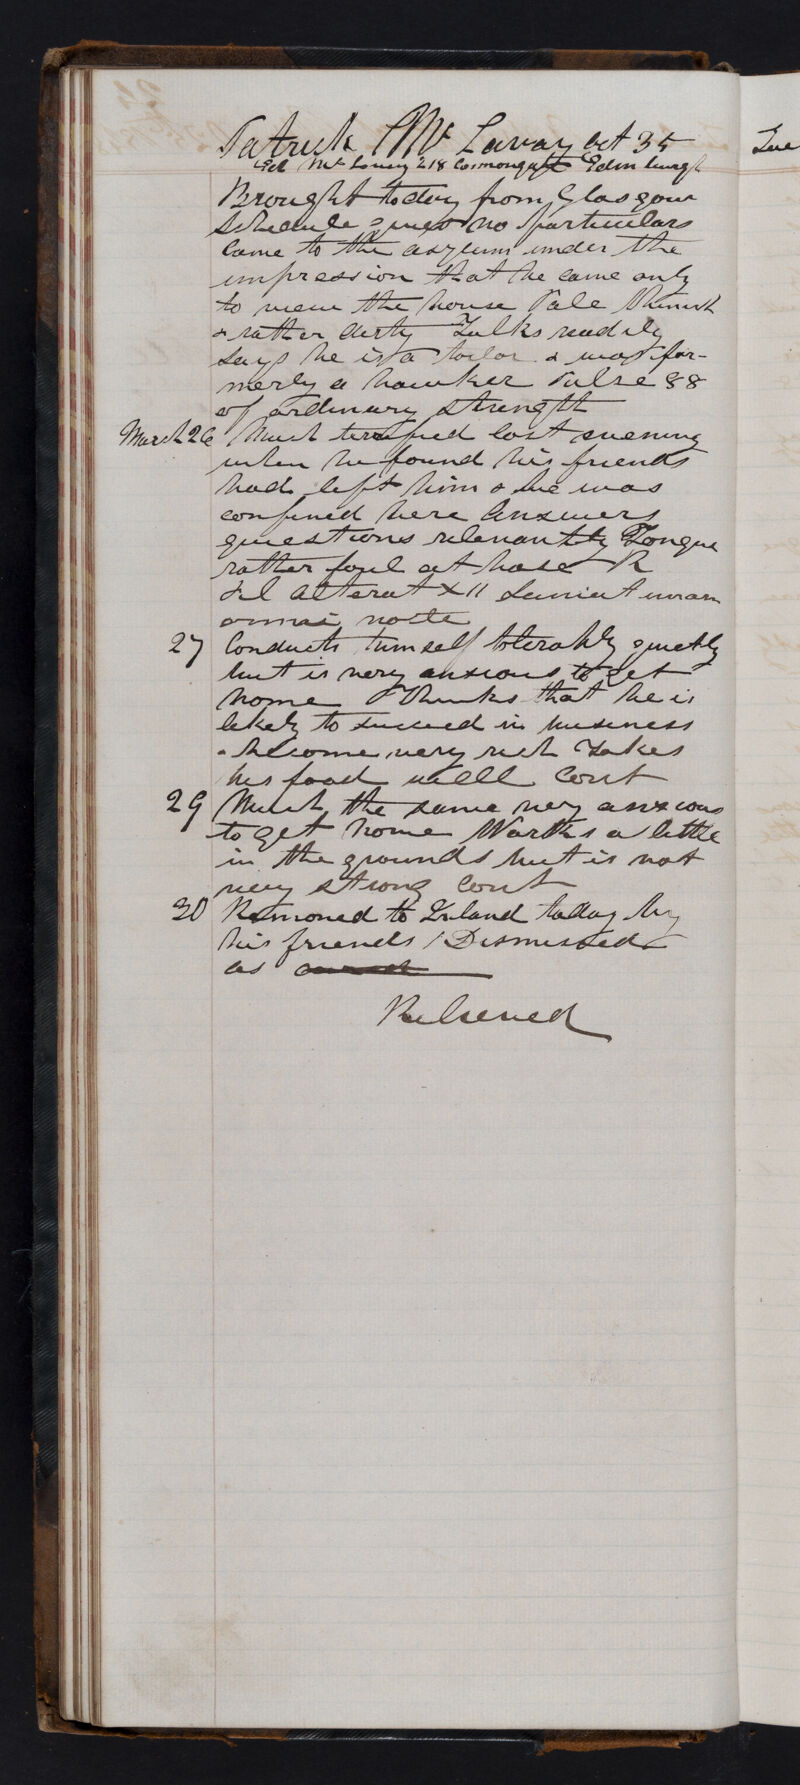 Patrick McLavay aet 35
Ed McLavay 218 Cosmongate Edinburgh
Brought today from Glasgow
schedule gives no particulars
Came to the asylum under the
impression that he came only
to view the house Pale thinish
& rather dirty Talks readily
says he is a tailor & was for-
merly a hawker Pulse 88
of ordinary strength
March 26 Much terrified last evening
when he found his friends
had left him & he was
confined here Answers
questions relevantly Tongue
rather foul at base R
Pil alterat XII Sumat unam
omni nocte
27 Conducts himself tolerably quietly
but is very anxious to get
home Thinks that he is
likely to succeed in business
& become very rich Takes
his food well Cont
29 Much the same very anxious
to get home Works a little
in the grounds but is not
very strong Cont
30 Removed to Ireland today by
his friends / Dismissed
as
Relieved